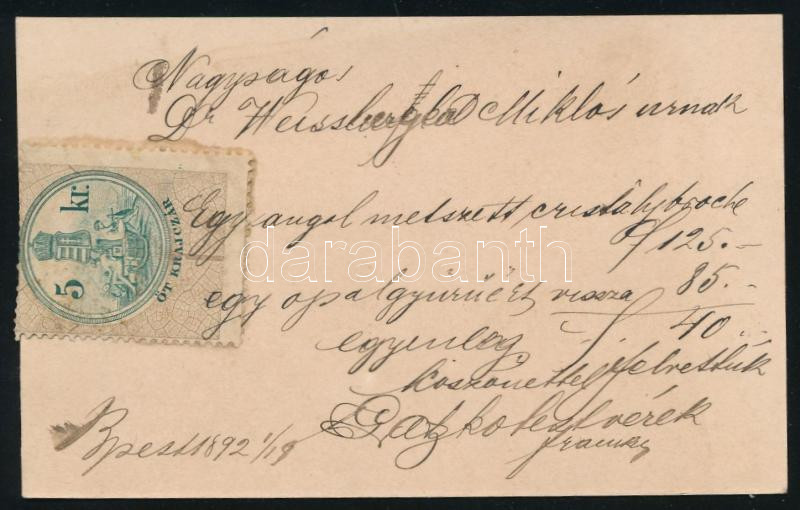 Nagyságos
Dr Weissburg Miklós urnak
Egy angol metszett cristálybroche
f 125.–
egy opálgyűrűért vissza 85.–
egyenleg f 40.–
köszönettel felvettük
testvérek
Bpest 1892 1/19
5 kr.
ÖT KRAJCZÁR
darabanth